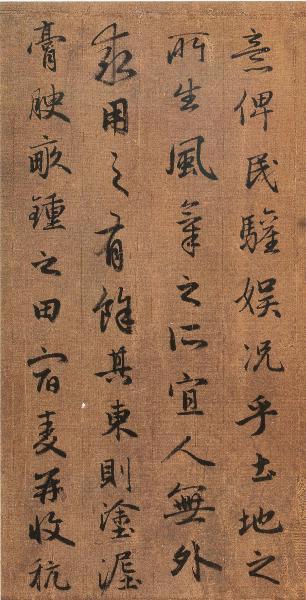 意俾民驩娱况乎土地之
所生風氣之所宜人無外
求用之有餘其東則塗渥
膏腴畝鍾之田宿麦再收秔